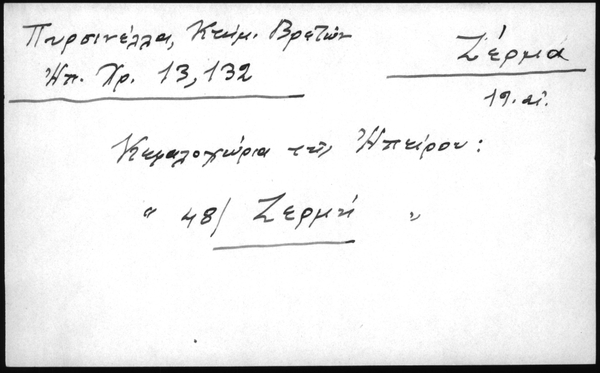 Πυρσινέλλα, Κτημ. Βρετών
Ἠπ. Χρ. 13,132
Ζέρμα
19. αἰ.
Κεφαλοχώρια τῆς Ἠπείρου:
" 48/ Ζερμή "